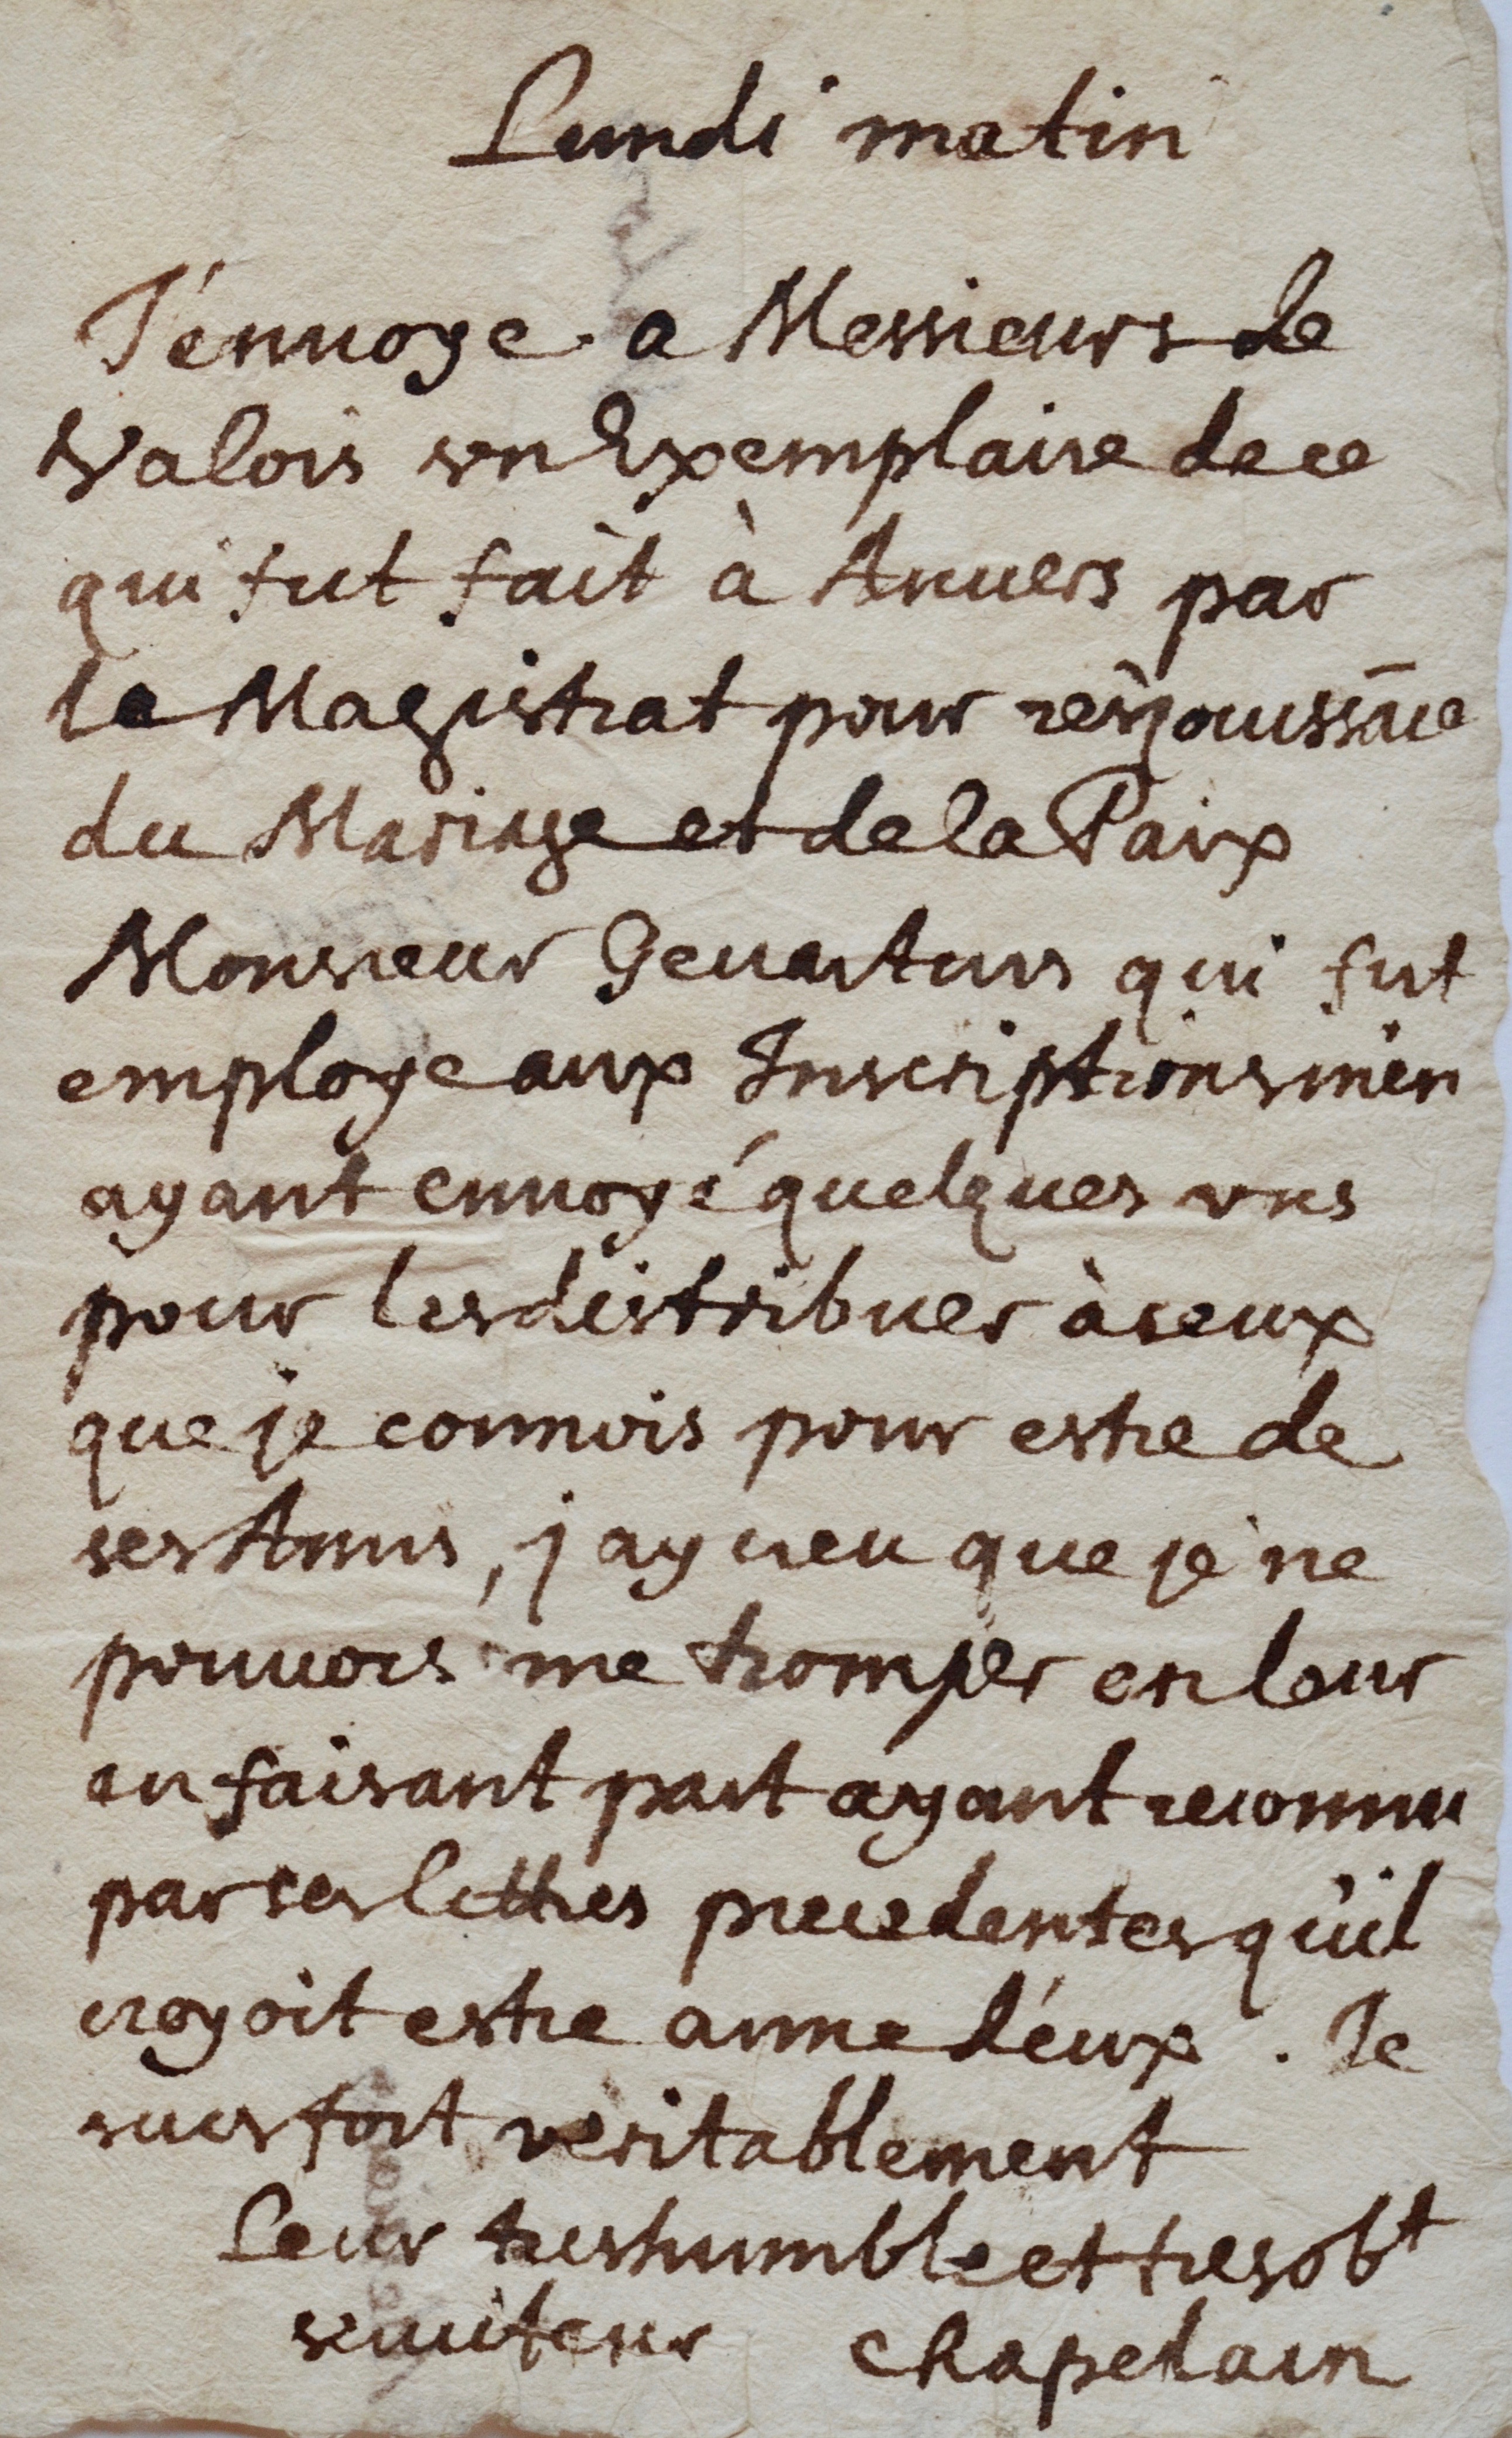 Lundi matin
J'enuoye a Messieurs de
Valois vn Exemplaire de ce
qui fut fait à Anuers par
le Magistrat pour resjouissāce
du Mariage et de la Paix
Monsieur Geuartius qui fut
employe aux Inscriptions m'en
ayant enuoyé quelques vns
pour les distribuer à ceux
que je connois pour estre de
ses Amis, j ay creu que je ne
pouuois me tromper en leur
en faisant part ayant reconnu
par ses lettres precedentes qu'il
croyoit estre aimé d'eux. Je
suis fort veritablement
Leur treshumble et tresobt
seruiteur Chapelain